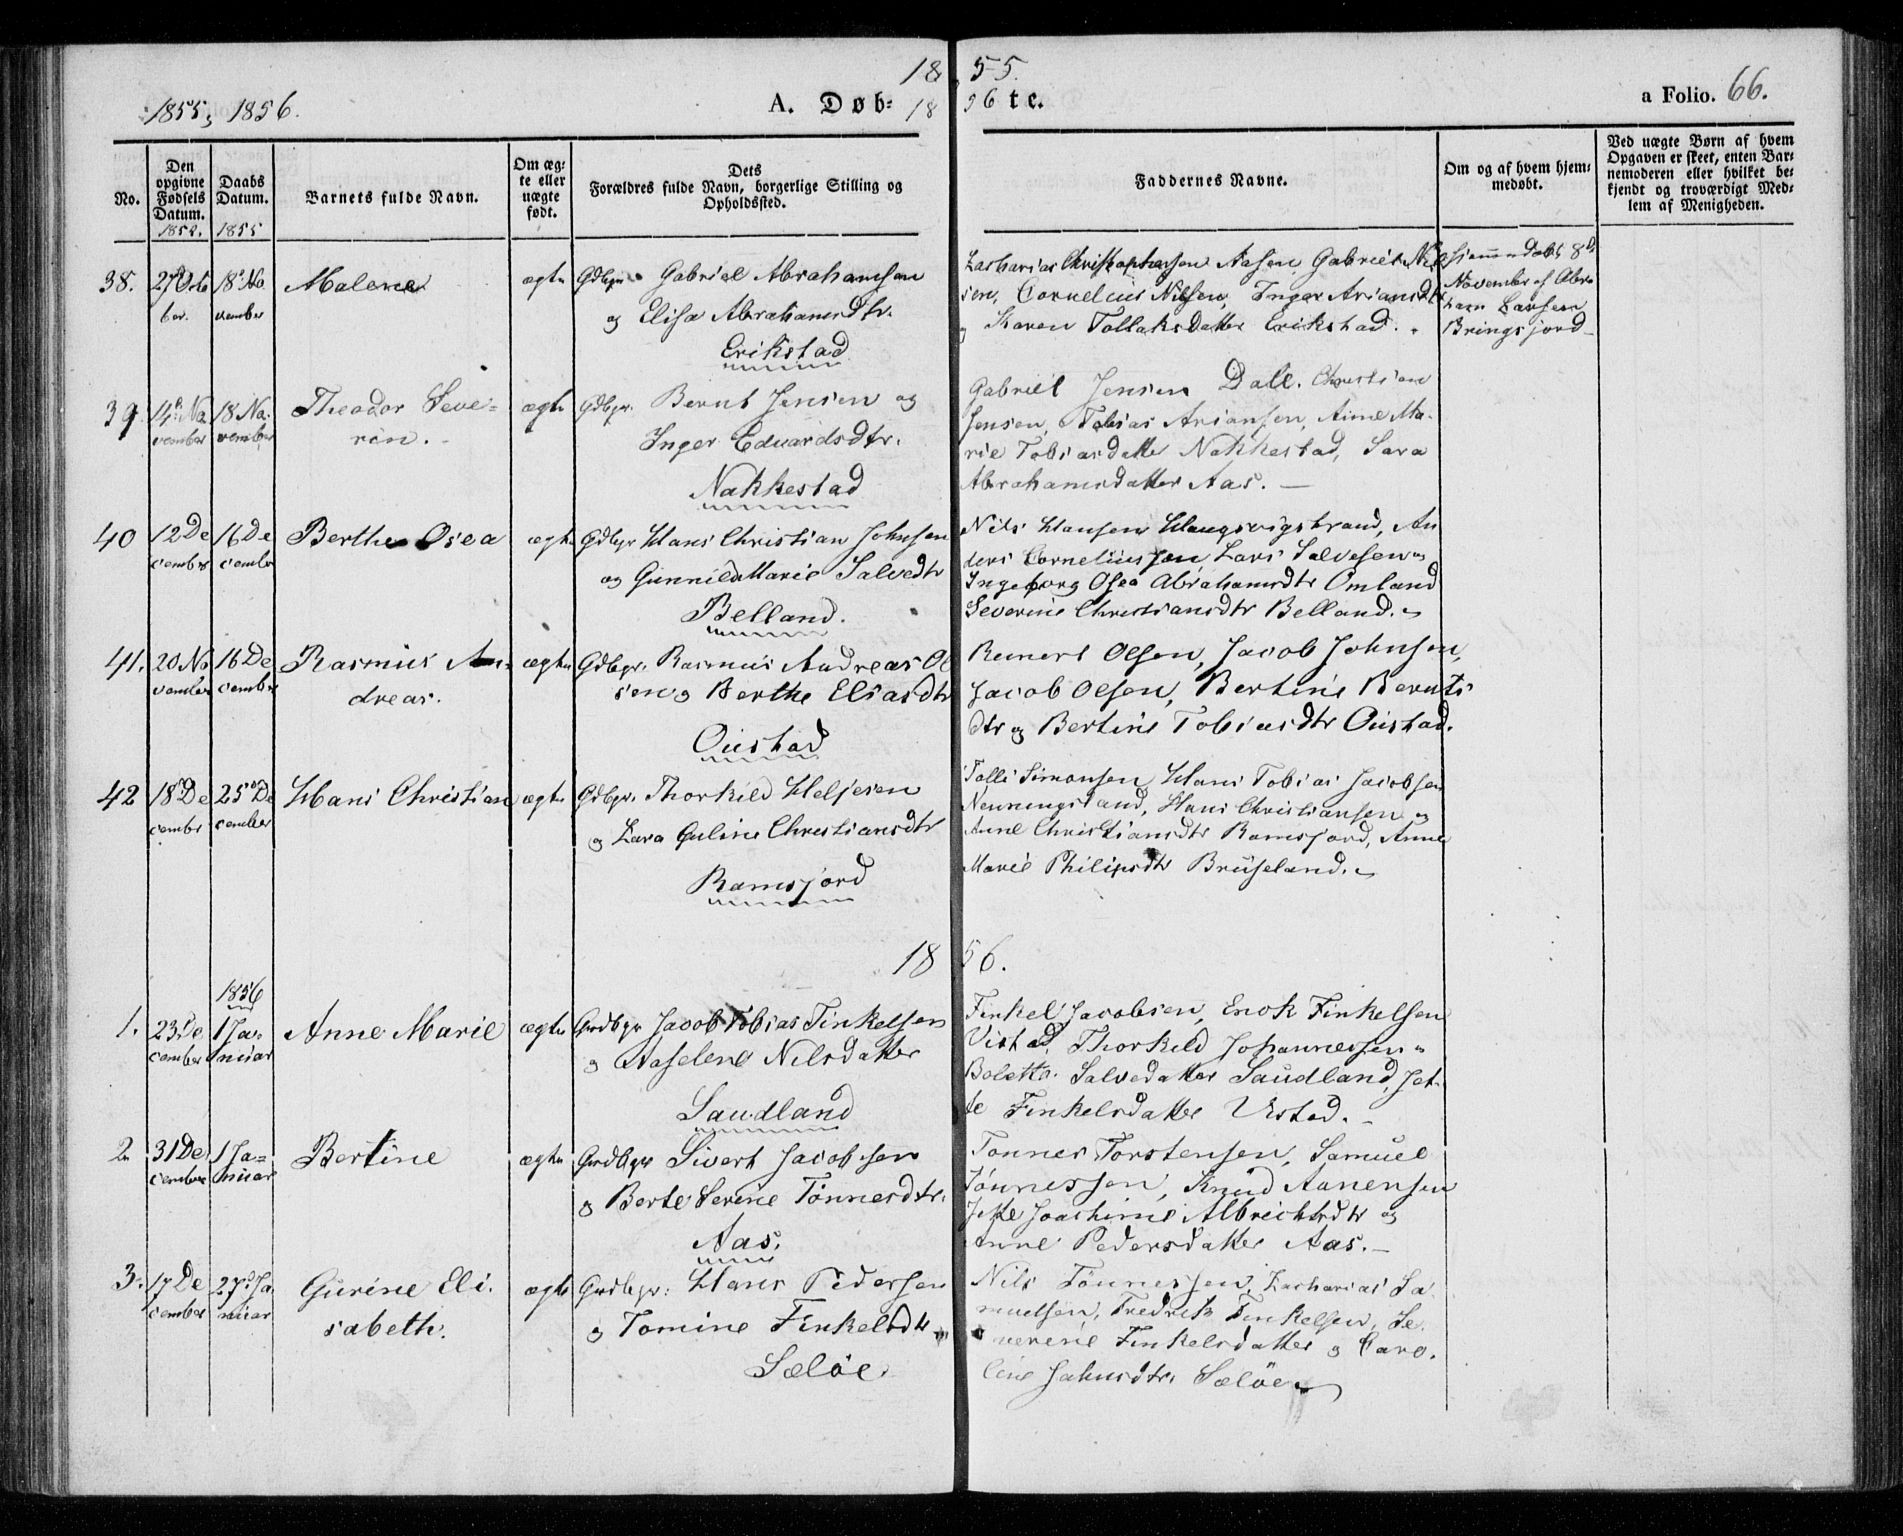 18 55.
1855, 1856.
A. Døb- 18 56 te.
a Folio. 66.
No.
Den opgivne Fødsels Datum. 185
Daabs Datum. 1855
Barnets fulde Navn.
Om ægte eller uægte født.
Dets Forældres fulde Navn, borgerlige Stilling og Opholdssted.
Faddernes Navne.
Om og af hvem hjemmedøbt.
Ved uægte Børn af hvem Opgaven er skeet, enten Barnemoderen eller hvilket bekjendt og troværdigt Medlem af Menigheden.
38. 27 Octo 18 No Malene ægte Gdbgr Gabriel Abrahamsen
ber. vember og Elisa Abrahamsdtr.
Erikstad
Zacharias Christophersen Aasen, Gabriel Niel
sen, Cornelius Nilsen, Inger Ariansdtr
og Karen Tollaksdatter Erikstad.
Hjemmedøbt 8d
November af Abra
ham Larsen
Bringsjord
39. 14 No 18 No. Theodor Seve= ægte Gdbgr. Bernt Jensen og
vember vember rin. Inger Eduardsdtr.
Nakkestad
Gabriel Jensen Dale. Christian
Jensen, Tobias Ariansen, Anne Ma-
rie Tobiasdatter Nakkestad, Sara
Abrahamsdatter Aas. —
40 12 De 16 De Berthe Osea ægte Gdbgr Hans Christian Johnsen
cember cember og Gunnild Marie Salvedtr
Belland.
Nils Hansen Haugsvigstrand, An
ders Corneliussen, Lars Salvesen og
Ingeborg Osea Abrahamsdtr Omland
Severine Christiansdtr Belland.
41. 20 No 16 De Rasmus An= ægte Gdbgr. Rasmus Andreas Ol
vember cember dreas. sen og Berthe Eliasdtr
Oustad
Reinert Olsen, Jacob Johnsen,
Jacob Olsen, Bertine Bernts
dtr og Bertine Tobiasdtr Oustad.
42 18 De 25 De Hans Christian ægte Gdbgr. Thorkild Heljesen
cember cember og Lara Guline Christiansdtr
Ramsjord
Tolli Simonsen, Hans Tobias Jacobsen
Hans Christiansen og
Anne Christiansdtr Ramsjord, Anne
Marie Philipsdtr Bruseland.
18 56.
1856
1. 23 De 1 Ja= Anne Marie ægte Grdbgr Jacob Tobias Finkelsen
cember nuar og Aaselene Nilsdatter
Saudland
Finkel Jacobsen, Enok Finkelsen
Vistad, Thorkild Johannessen og
Bolette Salvedatter Saudland, Jet-
te Finkelsdatter Vistad.
2 31 De 1 Ja= Bertine ægte Grdbgr Sivert Jacobsen
cember nuar og Berte Serine Tønnesdtr.
Aas.
Tønnes Torstensen, Samuel
Tønnessen, Knud Aanensen
Jette Joachime Albrechtsdtr og
Anne Pedersdatter Aas. —
3. 17 De 27 Ja Gurine Eli. ægte Grdbgr: Hans Pedersen
cember nuar sabeth. og Tomine Finkelsdtr
Seløe
Nils Tønnessen, Zacharias Sa
muelsen, Fredrik Finkelsen, Se
verine Finkelsdatter og Caro.
line Jahnsdtr Seløe